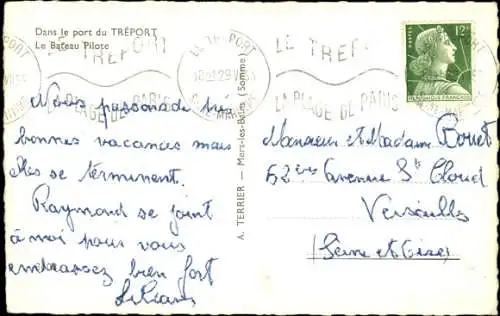 Dans le port du TRÉPORT
Le Bateau Pilote
LE TRÉPORT
LA PLAGE DE PARIS
LE TRÉPORT
LE TRÉPORT
LA PLAGE DE PARIS
POSTES
12F
RÉPUBLIQUE FRANÇAISE
A. TERRIER - Mers-les-Bains (Somme)
bonnes vacances mais
elles se terminent.
Raymond se joint
à moi pour vous
embrasser bien fort
Monsieur et Madame Bouet
52 Avenue St Cloud
Versailles
(Seine et Oise)